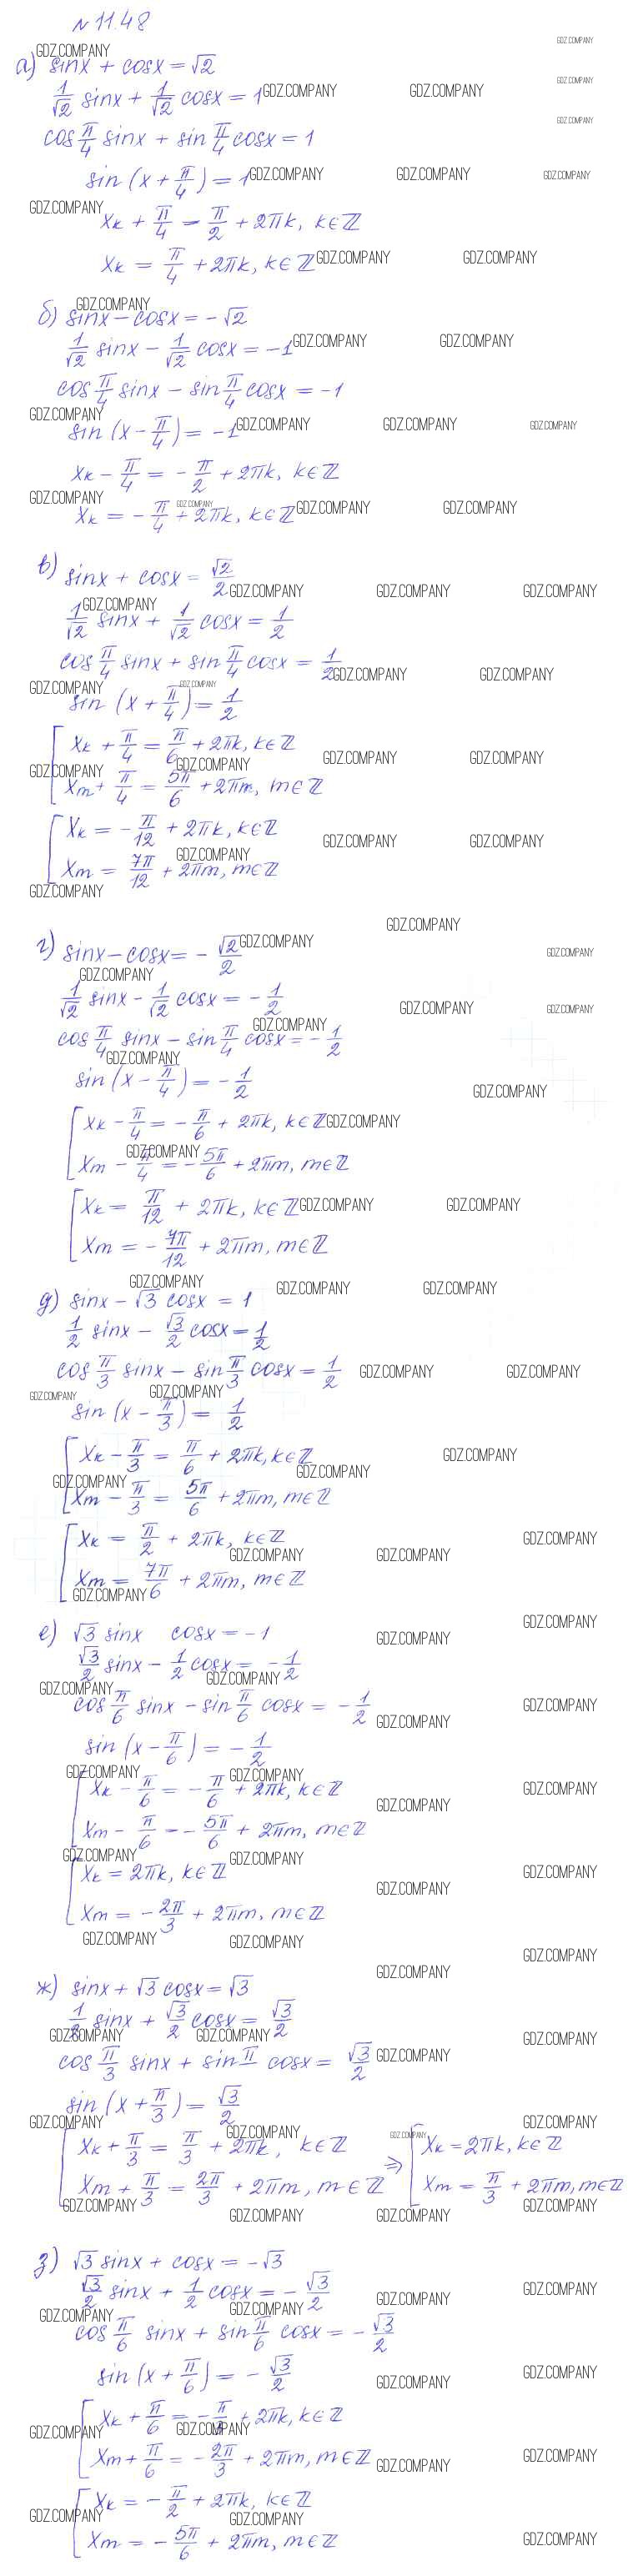 № 11.48
а) sinx + cosx = √2
1/√2 sinx + 1/√2 cosx = 1
cos π/4 sinx + sin π/4 cosx = 1
sin (x + π/4) = 1
xₖ + π/4 = π/2 + 2πk, k∈ℤ
xₖ = π/4 + 2πk, k∈ℤ
б) sinx − cosx = −√2
1/√2 sinx − 1/√2 cosx = −1
cos π/4 sinx − sin π/4 cosx = −1
sin (x − π/4) = −1
xₖ − π/4 = −π/2 + 2πk, k∈ℤ
xₖ = −π/4 + 2πk, k∈ℤ
в) sinx + cosx = √2/2
1/√2 sinx + 1/√2 cosx = 1/2
cos π/4 sinx + sin π/4 cosx = 1/2
sin (x + π/4) = 1/2
[ xₖ + π/4 = π/6 + 2πk, k∈ℤ
xₘ + π/4 = 5π/6 + 2πm, m∈ℤ
[ xₖ = −π/12 + 2πk, k∈ℤ
xₘ = 7π/12 + 2πm, m∈ℤ
г) sinx − cosx = −√2/2
1/√2 sinx − 1/√2 cosx = −1/2
cos π/4 sinx − sin π/4 cosx = −1/2
sin (x − π/4) = −1/2
[ xₖ − π/4 = −π/6 + 2πk, k∈ℤ
xₘ − π/4 = −5π/6 + 2πm, m∈ℤ
[ xₖ = π/12 + 2πk, k∈ℤ
xₘ = −7π/12 + 2πm, m∈ℤ
д) sinx − √3 cosx = 1
1/2 sinx − √3/2 cosx = 1/2
cos π/3 sinx − sin π/3 cosx = 1/2
sin (x − π/3) = 1/2
[ xₖ − π/3 = π/6 + 2πk, k∈ℤ
xₘ − π/3 = 5π/6 + 2πm, m∈ℤ
[ xₖ = π/2 + 2πk, k∈ℤ
xₘ = 7π/6 + 2πm, m∈ℤ
е) √3 sinx cosx = −1
√3/2 sinx − 1/2 cosx = −1/2
cos π/6 sinx − sin π/6 cosx = −1/2
sin (x − π/6) = −1/2
[ xₖ − π/6 = −π/6 + 2πk, k∈ℤ
xₘ − π/6 = −5π/6 + 2πm, m∈ℤ
[ xₖ = 2πk, k∈ℤ
xₘ = −2π/3 + 2πm, m∈ℤ
ж) sinx + √3 cosx = √3
1/2 sinx + √3/2 cosx = √3/2
cos π/3 sinx + sin π cosx = √3/2
sin (x + π/3) = √3/2
[ xₖ + π/3 = π/3 + 2πk, k∈ℤ ⇒ [ xₖ = 2πk, k∈ℤ
xₘ + π/3 = 2π/3 + 2πm, m∈ℤ xₘ = π/3 + 2πm, m∈ℤ
з) √3 sinx + cosx = −√3
√3/2 sinx + 1/2 cosx = −√3/2
cos π/6 sinx + sin π/6 cosx = −√3/2
sin (x + π/6) = −√3/2
[ xₖ + π/6 = −π/3 + 2πk, k∈ℤ
xₘ + π/6 = −2π/3 + 2πm, m∈ℤ
[ xₖ = −π/2 + 2πk, k∈ℤ
xₘ = −5π/6 + 2πm, m∈ℤ
GDZ.COMPANY